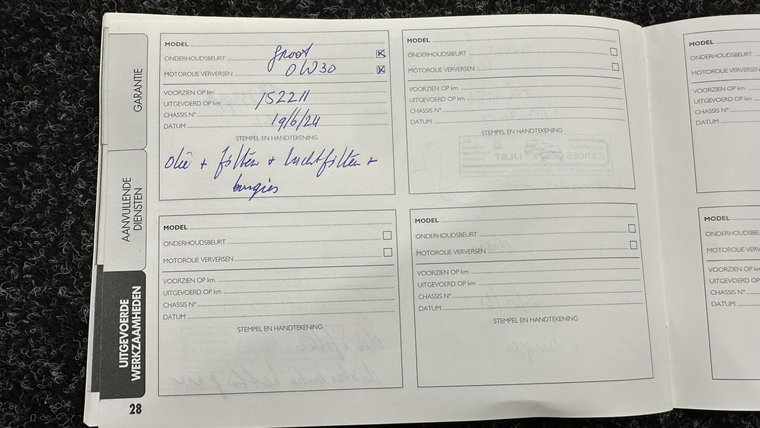 GARANTIE
AANVULLENDE
DIENSTEN
UITGEVOERDE
WERKZAAMHEDEN
28
MODEL
ONDERHOUDSBEURT groot
MOTOROLIE VERVERSEN 0W30
VOORZIEN OP km
UITGEVOERD OP km 152211
CHASSIS N°
DATUM 19/6/24
STEMPEL EN HANDTEKENING
olie + filter + luchtfilter +
bougies
MODEL
ONDERHOUDSBEURT
MOTOROLIE VERVERSEN
VOORZIEN OP km
UITGEVOERD OP km
CHASSIS N°
DATUM
STEMPEL EN HANDTEKENING
MODEL
ONDERHOUDSBEURT
MOTOROLIE VERVERSEN
VOORZIEN OP km
UITGEVOERD OP km
CHASSIS N°
DATUM
STEMPEL EN HANDTEKENING
MODEL
ONDERHOUDSBEURT
MOTOROLIE VERVERSEN
VOORZIEN OP km
UITGEVOERD OP km
CHASSIS N°
DATUM
STEMPEL EN HANDTEKENING
MODEL
ONDERHOUDSBEU
MOTOROLIE VERV
VOORZIEN OP km
UITGEVOERD OP
CHASSIS N°
DATUM
MODEL
ONDERHOUDSBEU
MOTOROLIE VER
VOORZIEN OP km
UITGEVOERD OP
CHASSIS N°
DATUM